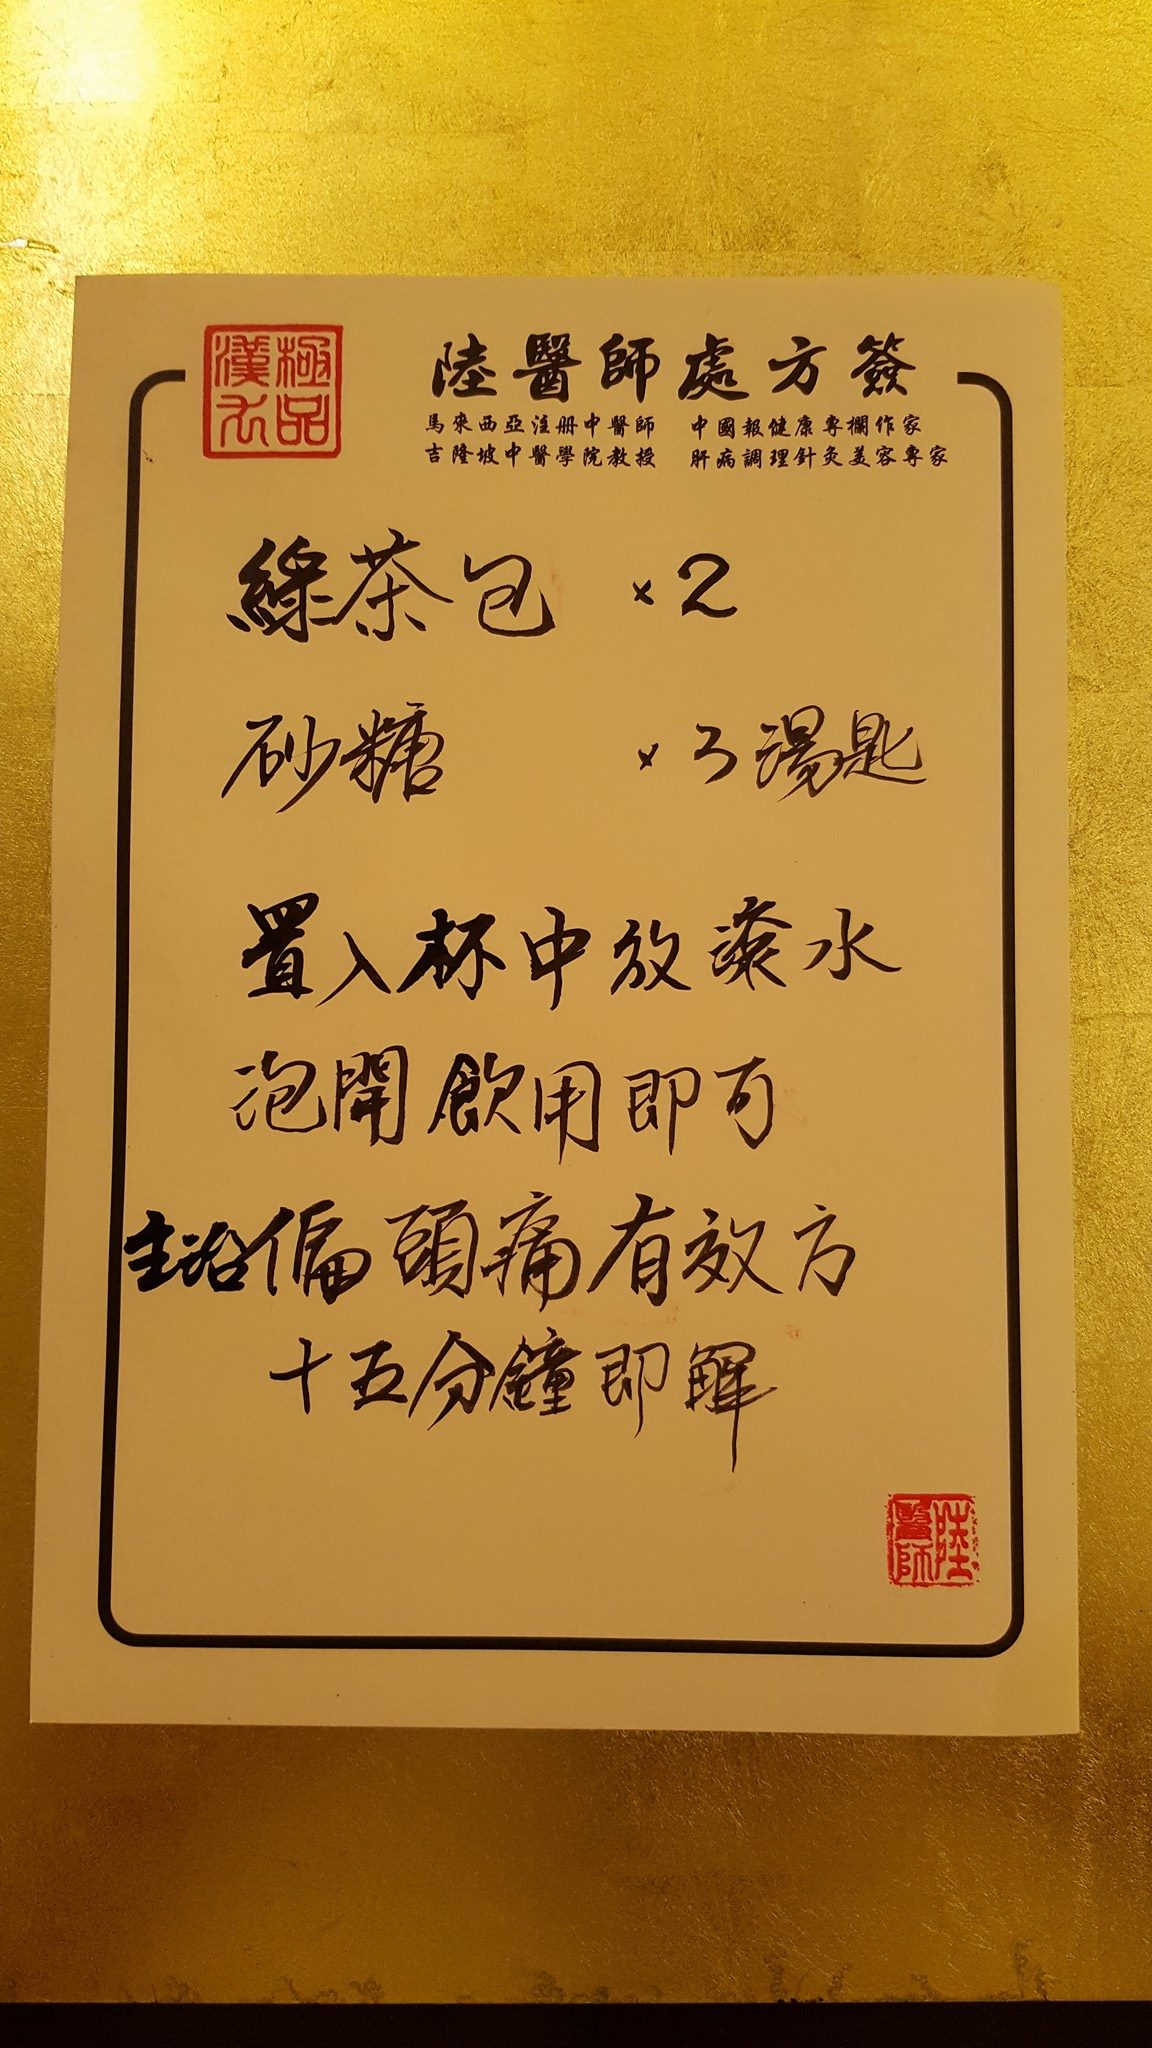 極品漢方
陸醫師處方簽
馬來西亞注册中醫師 中國報健康專欄作家
吉隆坡中醫學院教授 肝病調理針灸美容專家
綠茶包 ×2
砂糖 ×3湯匙
置入杯中放滾水
泡開飲用即可
主治偏頭痛有效方
十五分鐘即解
陸醫師